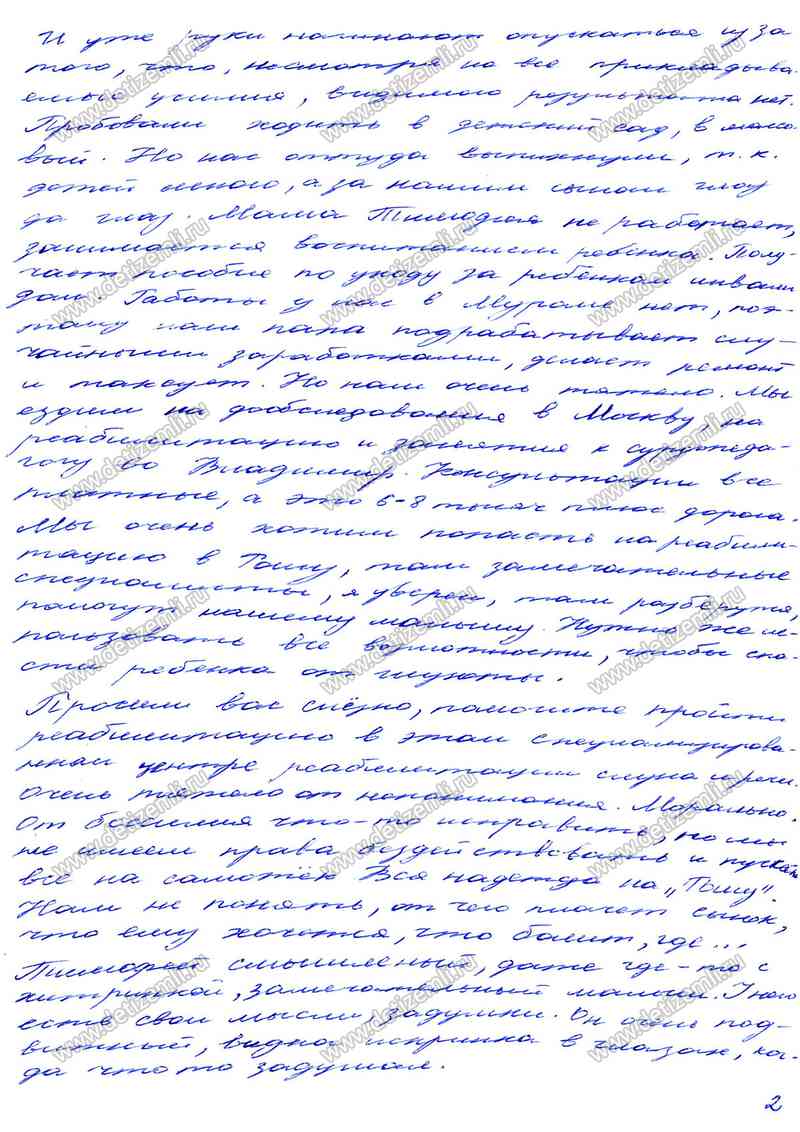 И уже руки начинают опускаться из за
того, что, несмотря на все прикладыва
емые усилия, видимого результата нет.
Пробовали ходить в детский сад, в массо
вый. Но нас оттуда выпихнули, т.к.
детей много, а за нашим сыном глаз
да глаз. Мама Тимофея не работает,
занимается воспитанием ребёнка. Полу-
чает пособие по уходу за ребёнком инвали
дом. Работы у нас в Муроме нет, поэ-
тому наш папа подрабатывает слу-
чайными заработками, делает ремонт
и таксует. Но нам очень тяжело. Мы
ездим на дообследования в Москву, на
реабилитацию и занятия к сурдопеда-
гогу во Владимир. Консультации все
платные, а это 6-8 тысяч плюс дорога.
Мы очень хотим попасть на реабили-
тацию в Тошу, там замечательные
специалисты, я уверен, там разберутся,
помогут нашему малышу. Нужно же ис-
пользовать все возможности, чтобы спа-
сти ребенка от глухоты.
Просим вас слёзно, помогите пройти
реабилитацию в этом специализирова-
нном центре реабилитации слуха и речи.
Очень тяжело от непонимания. Морально.
От бессилия что-то исправить, но мы
не имеем права бездействовать и пускать
всё на самотёк Вся надежда на „Тошу".
Нам не понять, от чего плачет сынок,
что ему хочется, что болит, где...
Тимофей смышленый, даже где-то с
хитринкой, замечательный малыш. У него
есть свои мысли, задумки. Он очень под-
вижный, видна искринка в глазах, ког-
да что то задумал.
2
www.detizemli.ru